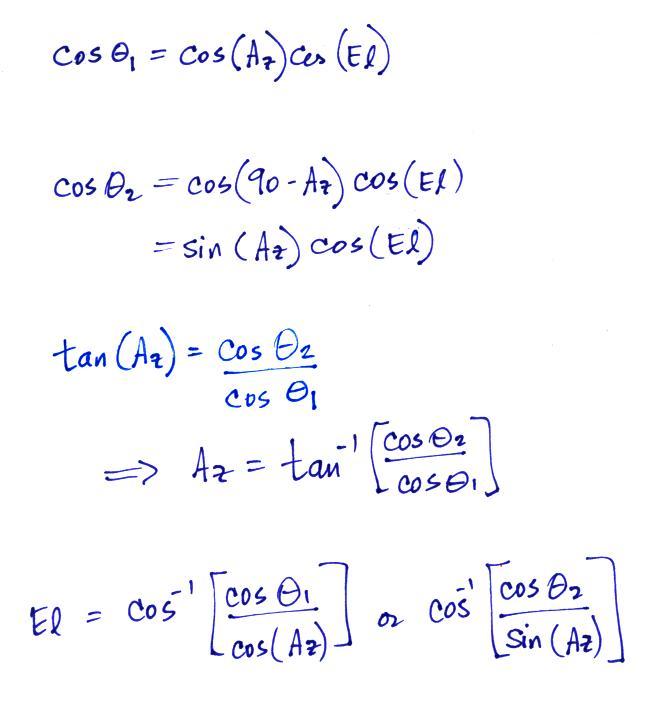 cos θ₁ = cos(Az) cos(El)
cos θ₂ = cos(90 - Az) cos(El)
= sin (Az) cos(El)
tan (Az) = cos θ₂ / cos θ₁
⟹ Az = tan⁻¹ [cos θ₂ / cos θ₁]
El = cos⁻¹ [cos θ₁ / cos(Az)] or cos⁻¹ [cos θ₂ / sin (Az)]